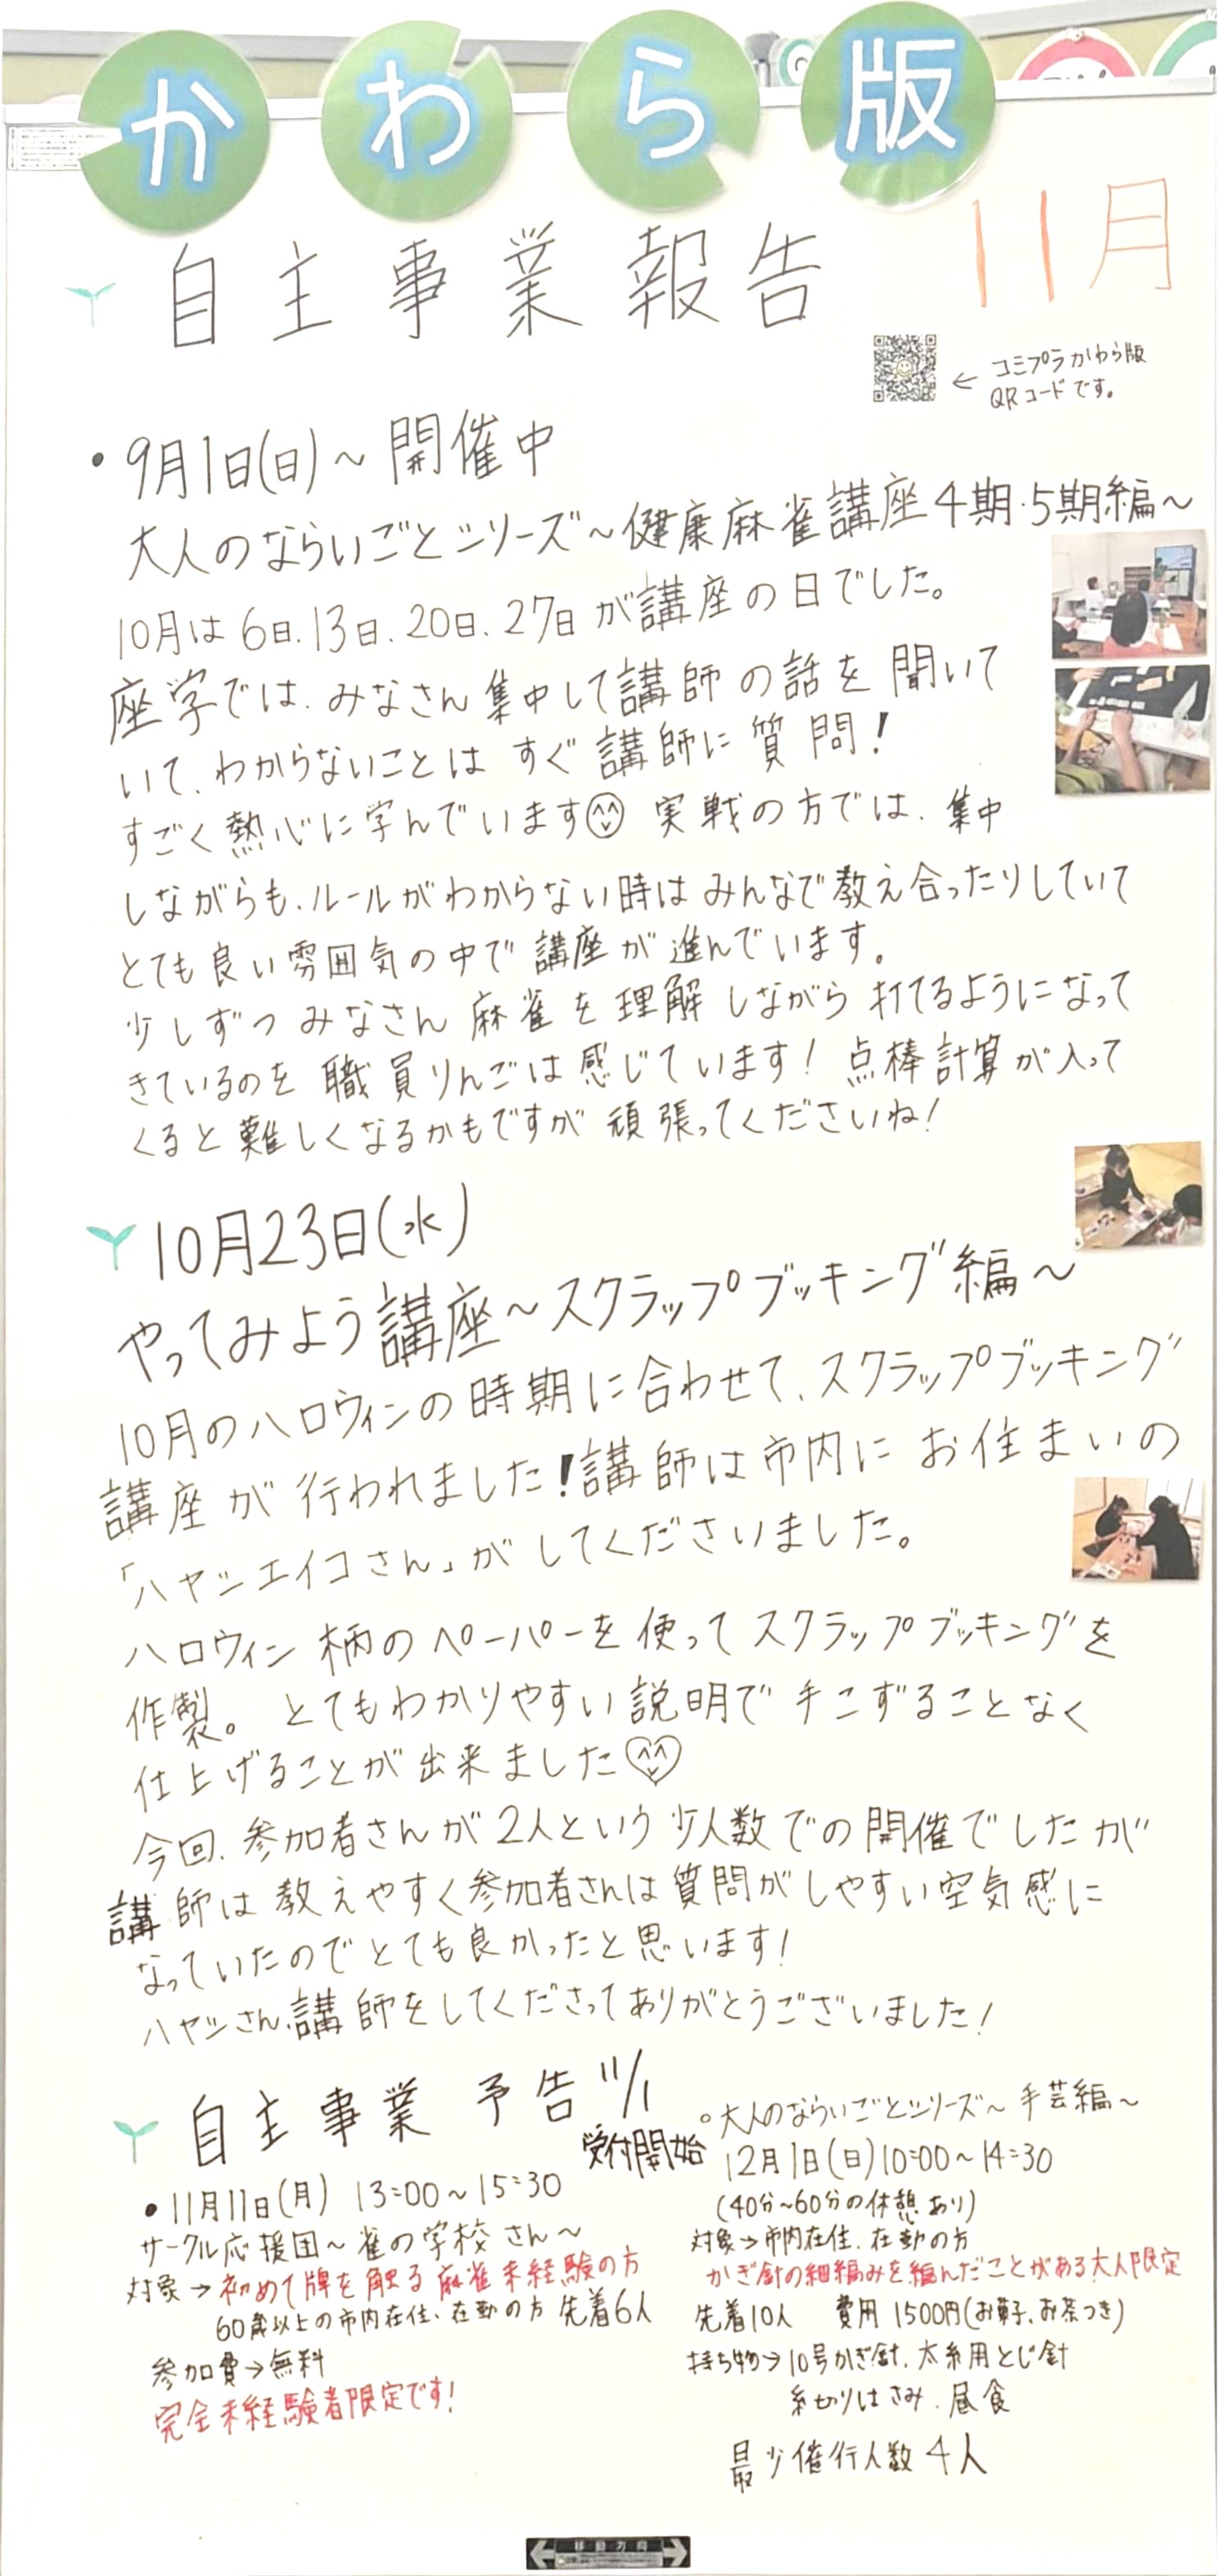 かわら版
11月
自主事業報告
← コミプラかわら版
QRコードです。
・9月1日(日)～開催中
大人のならいごとシリーズ～健康麻雀講座4期・5期編～
10月は6日、13日、20日、27日が講座の日でした。
座学では、みなさん集中して講師の話を聞いて
いて、わからないことはすぐ講師に質問!
すごく熱心に学んでいます 実戦の方では、集中
しながらも、ルールがわからない時はみんなで教え合ったりしていて
とても良い雰囲気の中で講座が進んでいます。
少しずつみなさん麻雀を理解しながら打てるようになって
きているのを職員りんごは感じています!点棒計算が入って
くると難しくなるかもですが頑張ってくださいね!
10月23日(水)
やってみよう講座～スクラップブッキング編～
10月のハロウィンの時期に合わせて、スクラップブッキング
講座が行われました!講師は市内にお住まいの
「ハヤシエイコさん」がしてくださいました。
ハロウィン柄のペーパーを使ってスクラップブッキングを
作製。とてもわかりやすい説明で手こずることなく
仕上げることが出来ました
今回、参加者さんが2人という少人数での開催でしたが
講師は教えやすく参加者さんは質問がしやすい空気感に
なっていたのでとても良かったと思います!
ハヤシさん、講師をしてくださってありがとうございました!
自主事業 予告 11/1
受付開始
・11月11日(月) 13:00～15:30
サークル応援団～雀の学校さん～
対象→初めて牌を触る麻雀未経験の方
60歳以上の市内在住、在勤の方 先着6人
参加費→無料
完全未経験者限定です!
○大人のならいごとシリーズ～手芸編～
12月1日(日)10:00～14:30
(40分～60分の休憩あり)
対象→市内在住、在勤の方
かぎ針の細編みを編んだことがある大人限定
先着10人 費用 1500円(お菓子、お茶つき)
持ち物→10号かぎ針、太糸用とじ針
糸切りはさみ、昼食
最少催行人数4人
移動方向